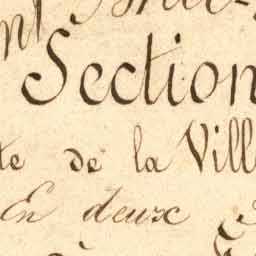 Section
te de la Ville
En deux